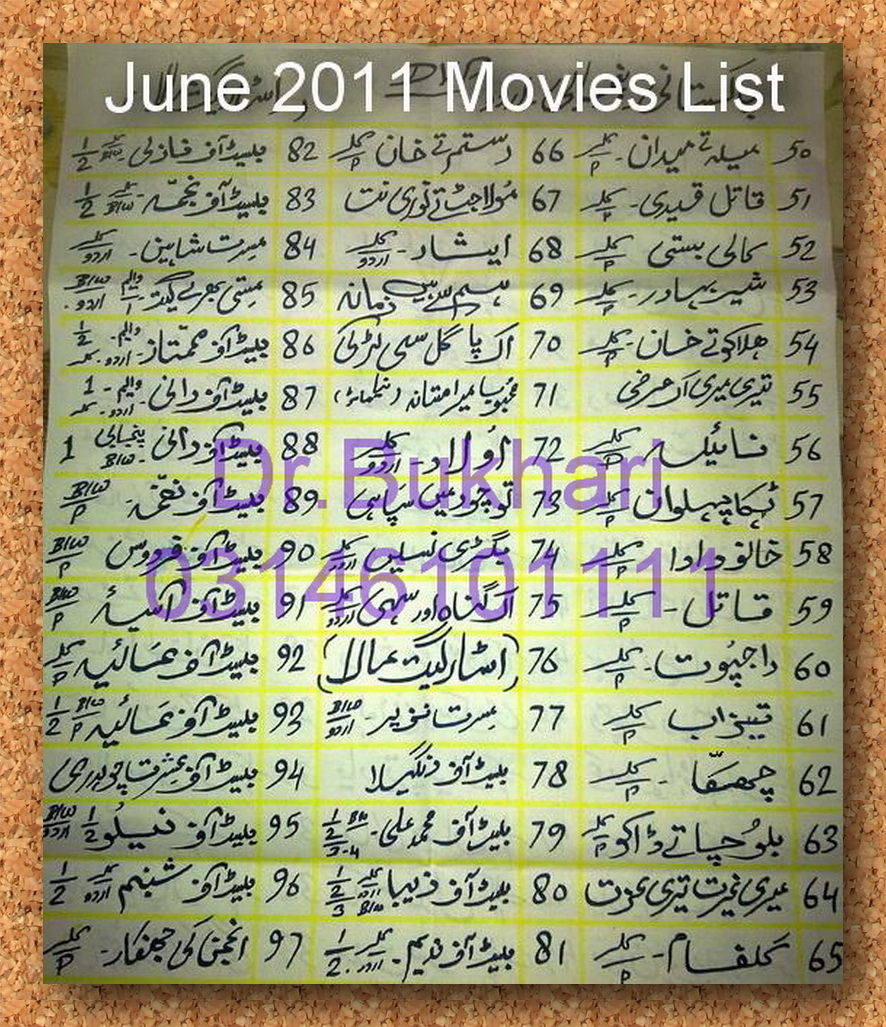 June 2011 Movies List
50 میلہ تے میدان - کلر P
51 قاتل قیدی - کلر P
52 کالی بستی کلر P
53 شیر بہادر - کلر P
54 ہلاکو تے خان - کلر P
55 تیری میری اک مرضی
56 نائیلہ کلر P
57 ٹہکا پہلوان کلر P
58 خالو دادا کلر P
59 قاتل - کلر P
60 راجپوت - کلر P
61 تیزاب کلر P
62 چھتقا - کلر P
63 بلو چپاتے ڈاکو کلر P
64 میری غیرت تیری عزت
65 گلفام - کلر P
66 رستم تے خان کلر P
67 مولا جٹ تے نوری نت
68 ایثار - کلر اردو
69 ہم سے ہیں زمانہ
70 اک پاگل سی لڑکی
71 محبوبا میرا مستانہ
72 اولاد - کلر اردو
73 تو چور میں سپاہی
74 بگڑی نسلیں کلر اردو
75 اک گناہ اور سہی کلر اردو
76 (اسٹار گیت مالا)
77 مسرت نذیر - B/W اردو
78 بلیڈ آف رنگیلا
79 بلیڈ آف محمد علی - 1 2 3-4
80 بلیڈ آف زیبا 1 2 3 کلر اردو B/W
81 بلیڈ آف ندیم - کلر اردو 1 2
82 بلیڈ آف نازلی کلر B/W 1 2
83 بلیڈ آف نجمہ - کلر B/W 1 2
84 مسرت شاہین - کلر اردو
85 مستی بھرے گیت والیم 1 B/W اردو
86 بلیڈ آف ممتاز - والیم 1 2 اردو کلر
87 بلیڈ آف رانی - والیم 1 اردو کلر
88 بلیڈ آف رانی پنجابی B/W 1
89 بلیڈ آف نغمہ - B/W P
90 بلیڈ آف فردوس B/W P
91 بلیڈ آف آسیہ B/W P
92 بلیڈ آف عالیہ کلر P
93 بلیڈ آف عالیہ B/W P 1 2
94 بلیڈ آف عشرت چوہدری
95 بلیڈ آف نیلو 1 2 B/W اردو
96 بلیڈ آف شبنم کلر اردو 1 2
97 انجمن کی جھنکار - کلر P
Dr.Bukhari
03146101111